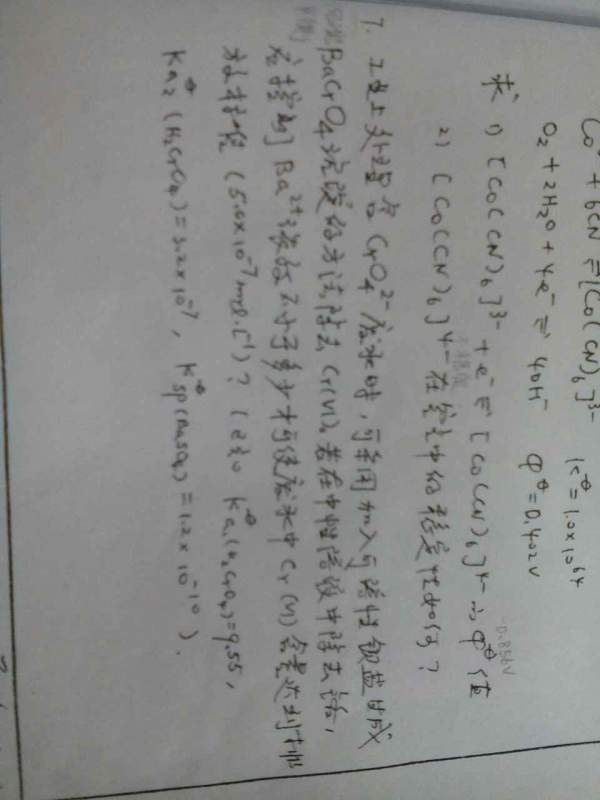 Co + 6CN ⇌ [Co(CN)6]3- K⊖=1.0×10^64
O2 + 2H2O + 4e- ⇌ 4OH- φ⊖=0.402V
求 1) [Co(CN)6]3- + e- ⇌ [Co(CN)6]4- 的 φ⊖值 -0.836V
2) [Co(CN)6]4- 在空气中的稳定性如何?
7. 工业上处理含CrO4 2-废水时,可采用加入可溶性钡盐生成
BaCrO4沉淀的方法除去Cr(VI),若在中性溶液中除去话,
应控制Ba2+浓度不小于多少才可使废水中Cr(VI)含量达到排
放标准(5.0×10-7 mol·L-1)?(已知 Ka1⊖(H2CrO4)=9.55,
Ka2⊖(H2CrO4)=3.2×10-7, Ksp⊖(BaSO4)=1.2×10-10).